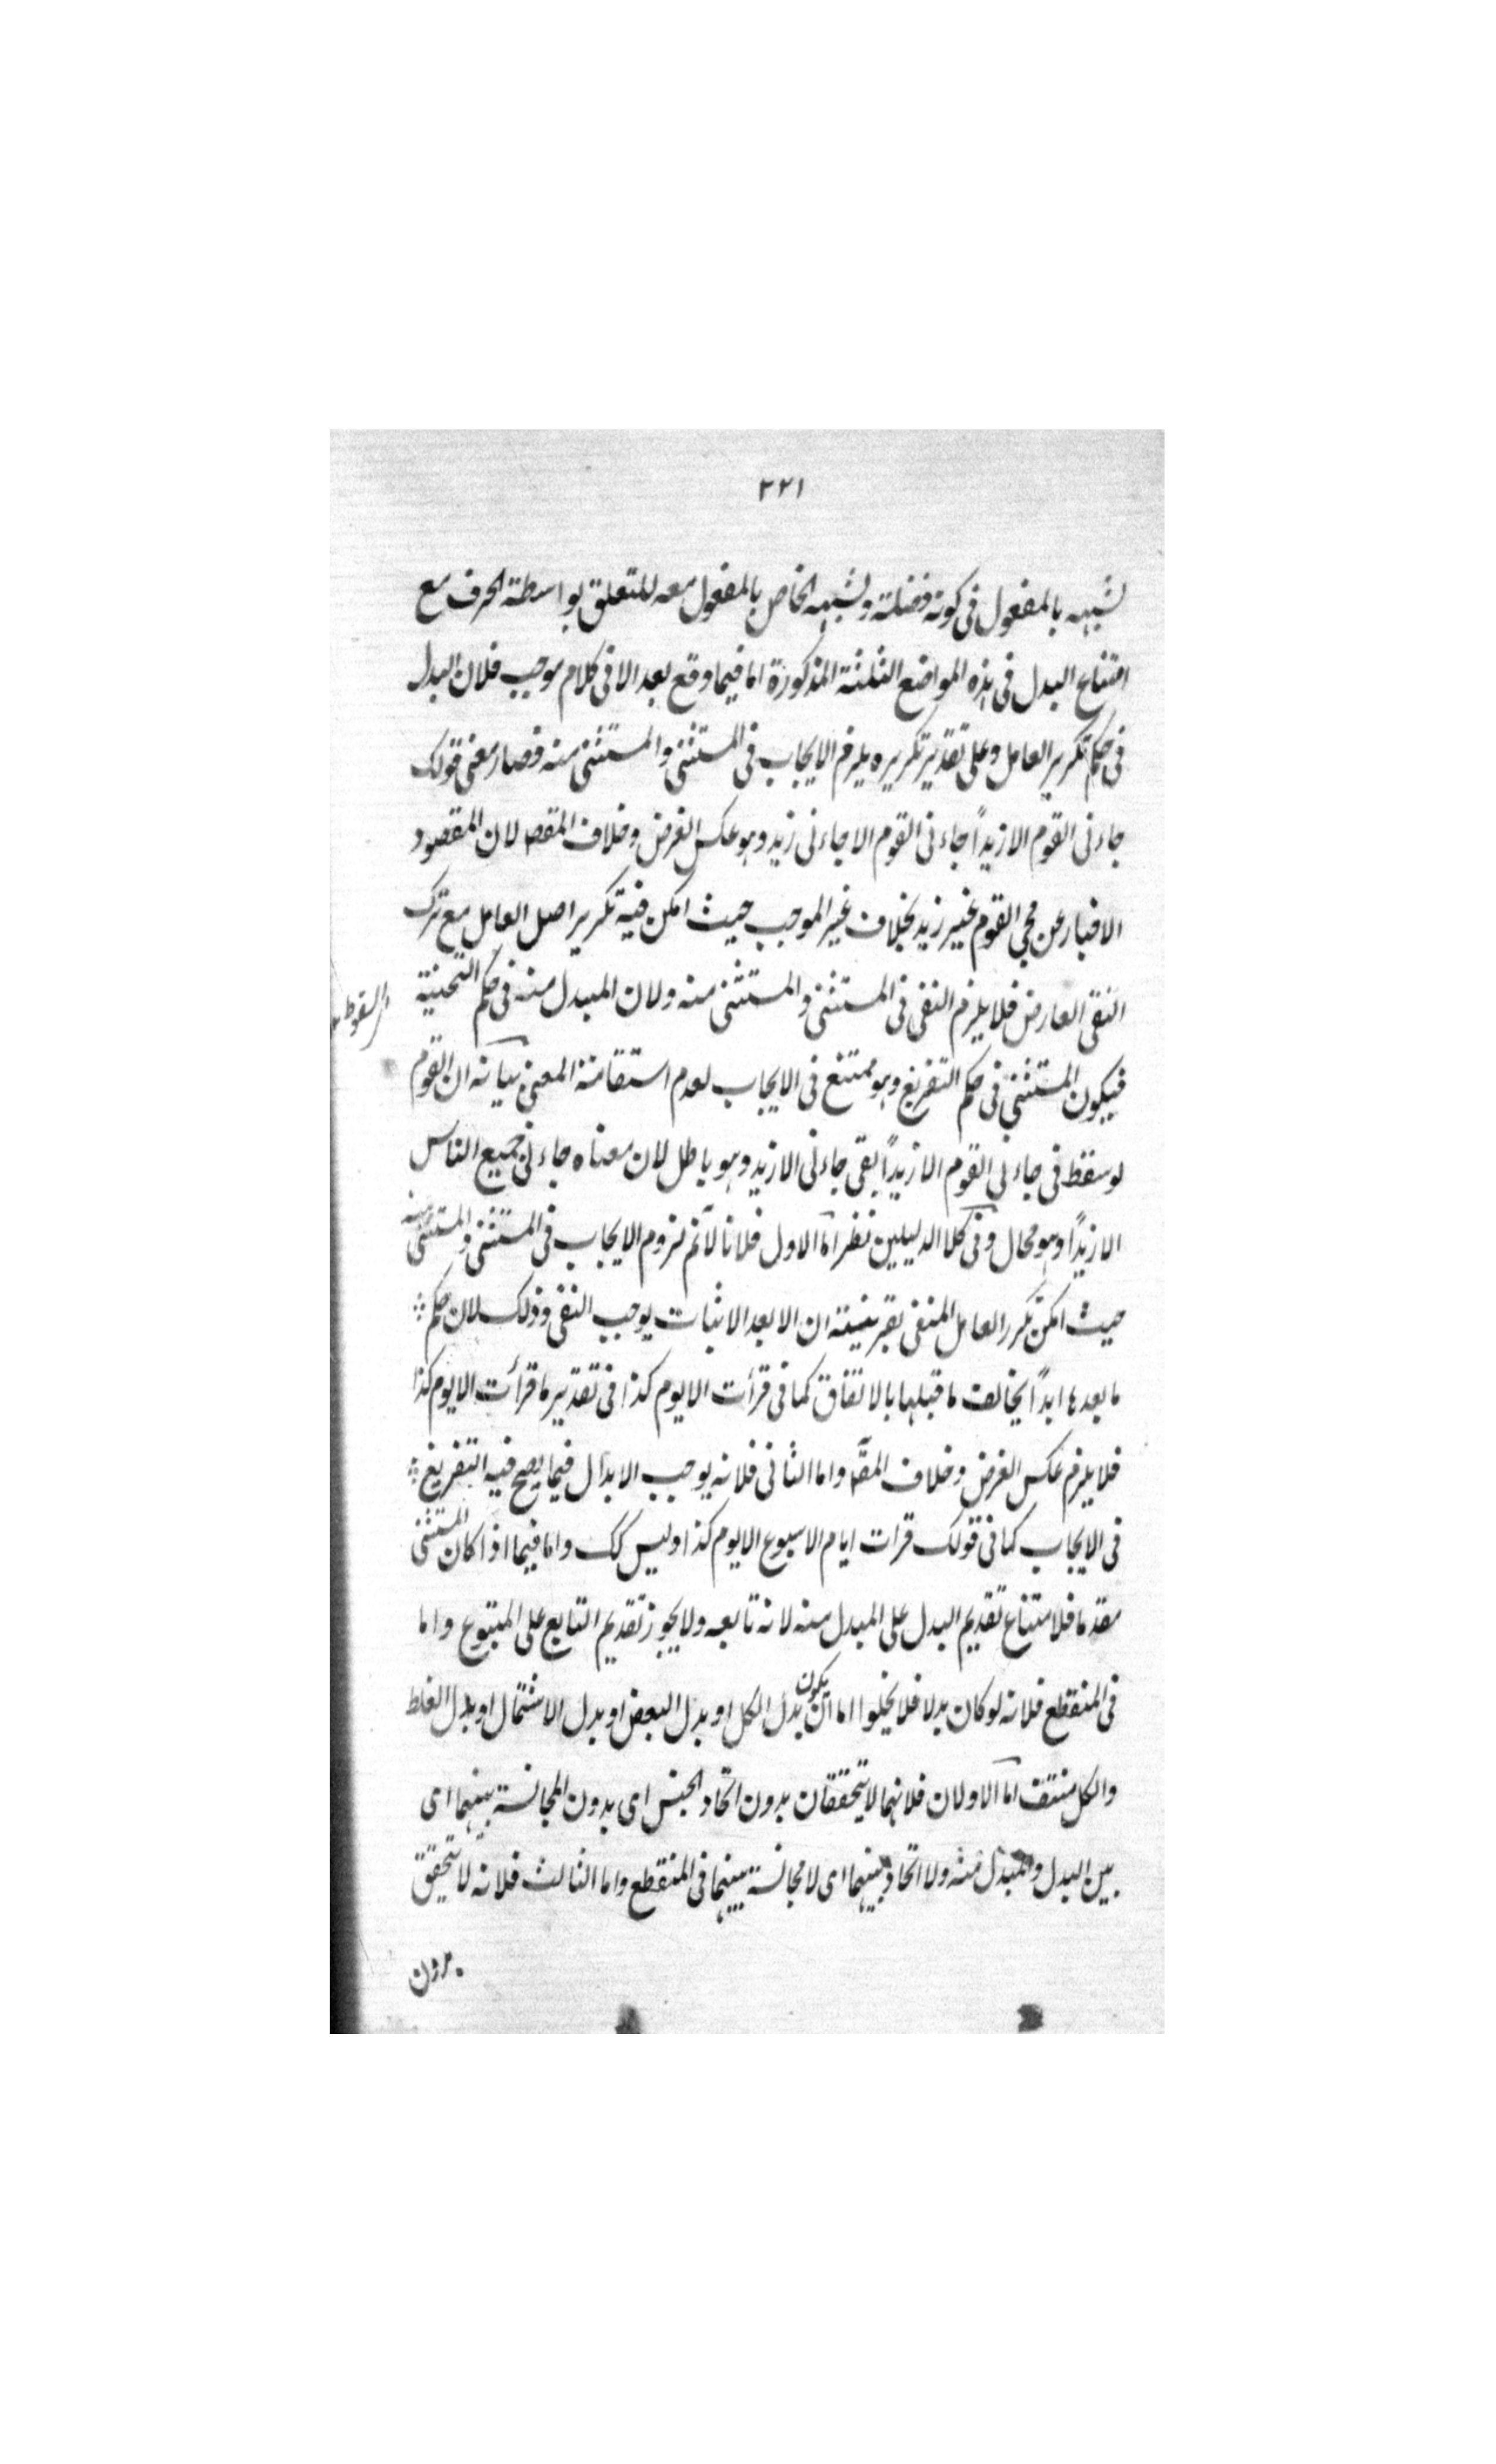 ٢٢١
لشبهه بالمفعول فى كونه فضلة ولشبهه الخاص بالمفعول معه للتعلق بواسطة الحرف مع
امتناع البدل فى هذه المواضع الثلثة المذكورة اما فيما وقع بعد الا فى كلام موجب فلان البدل
فى حكم تكرير العامل وعلى تقدير تكريره يلزم الايجاب فى المستثنى والمستثنى منه فصار معنى قولك
جاءنى القوم الا زيداً جاءنى القوم الا جاءنى زيد وهو عكس الغرض وخلاف المقصـ لان المقصود
الاخبار عن مجئ القوم غير زيد بخلاف غير الموجب حيث امكن فيه تكرير اصل العامل مع ترك
النفى العارض فلا يلزم النفى فى المستثنى والمستثنى منه ولان المبدل منه فى حكم التنحية
السقوط
فيكون المستثنى فى حكم التفريغ وهو ممتنع فى الايجاب لعدم استقامة المعنى بيانه ان القوم
لو سقط فى جاءنى القوم الا زيداً بقى جاءنى الا زيد وهو باطل لان معناه جاءنى جميع الناس
الا زيداً وهو محال وفى كلا الدليلين نظر اما الاول فلانا لا نم لزوم الايجاب فى المستثنى والمستثنى منه
حيث امكن تكرر العامل المنفى بقرينة ان الا بعد الاثبات يوجب النفى وذلك لان حكم
ما بعدها ابداً يخالف ما قبلها بالاتفاق كما فى قرأت الا يوم كذا فى تقدير ما قرأت الا يوم كذا
فلا يلزم عكس الغرض وخلاف المقـ واما الثانى فلانه يوجب الابدال فيما يصح فيه التفريغ
فى الايجاب كما فى قولك قرات ايام الاسبوع الا يوم كذا وليس كك واما فيما اذا كان المستثنى
مقدما فلامتناع تقديم البدل على المبدل منه لانه تابعه ولا يجوز تقديم التابع على المتبوع واما
فى المنقطع فلانه لو كان بدلا فلا يخلوا اما ان يكون بدل الكل او بدل البعض او بدل الاشتمال او بدل الغلط
والكل منتف اما الاولان فلانهما لا يتحققان بدون اتحاد الجنس اى بدون المجانسة بينهما اى
بين البدل والمبدل منه ولا اتحاد بينهما اى لا مجانسة بينهما فى المنقطع واما الثالث فلانه لا يتحقق
بدون